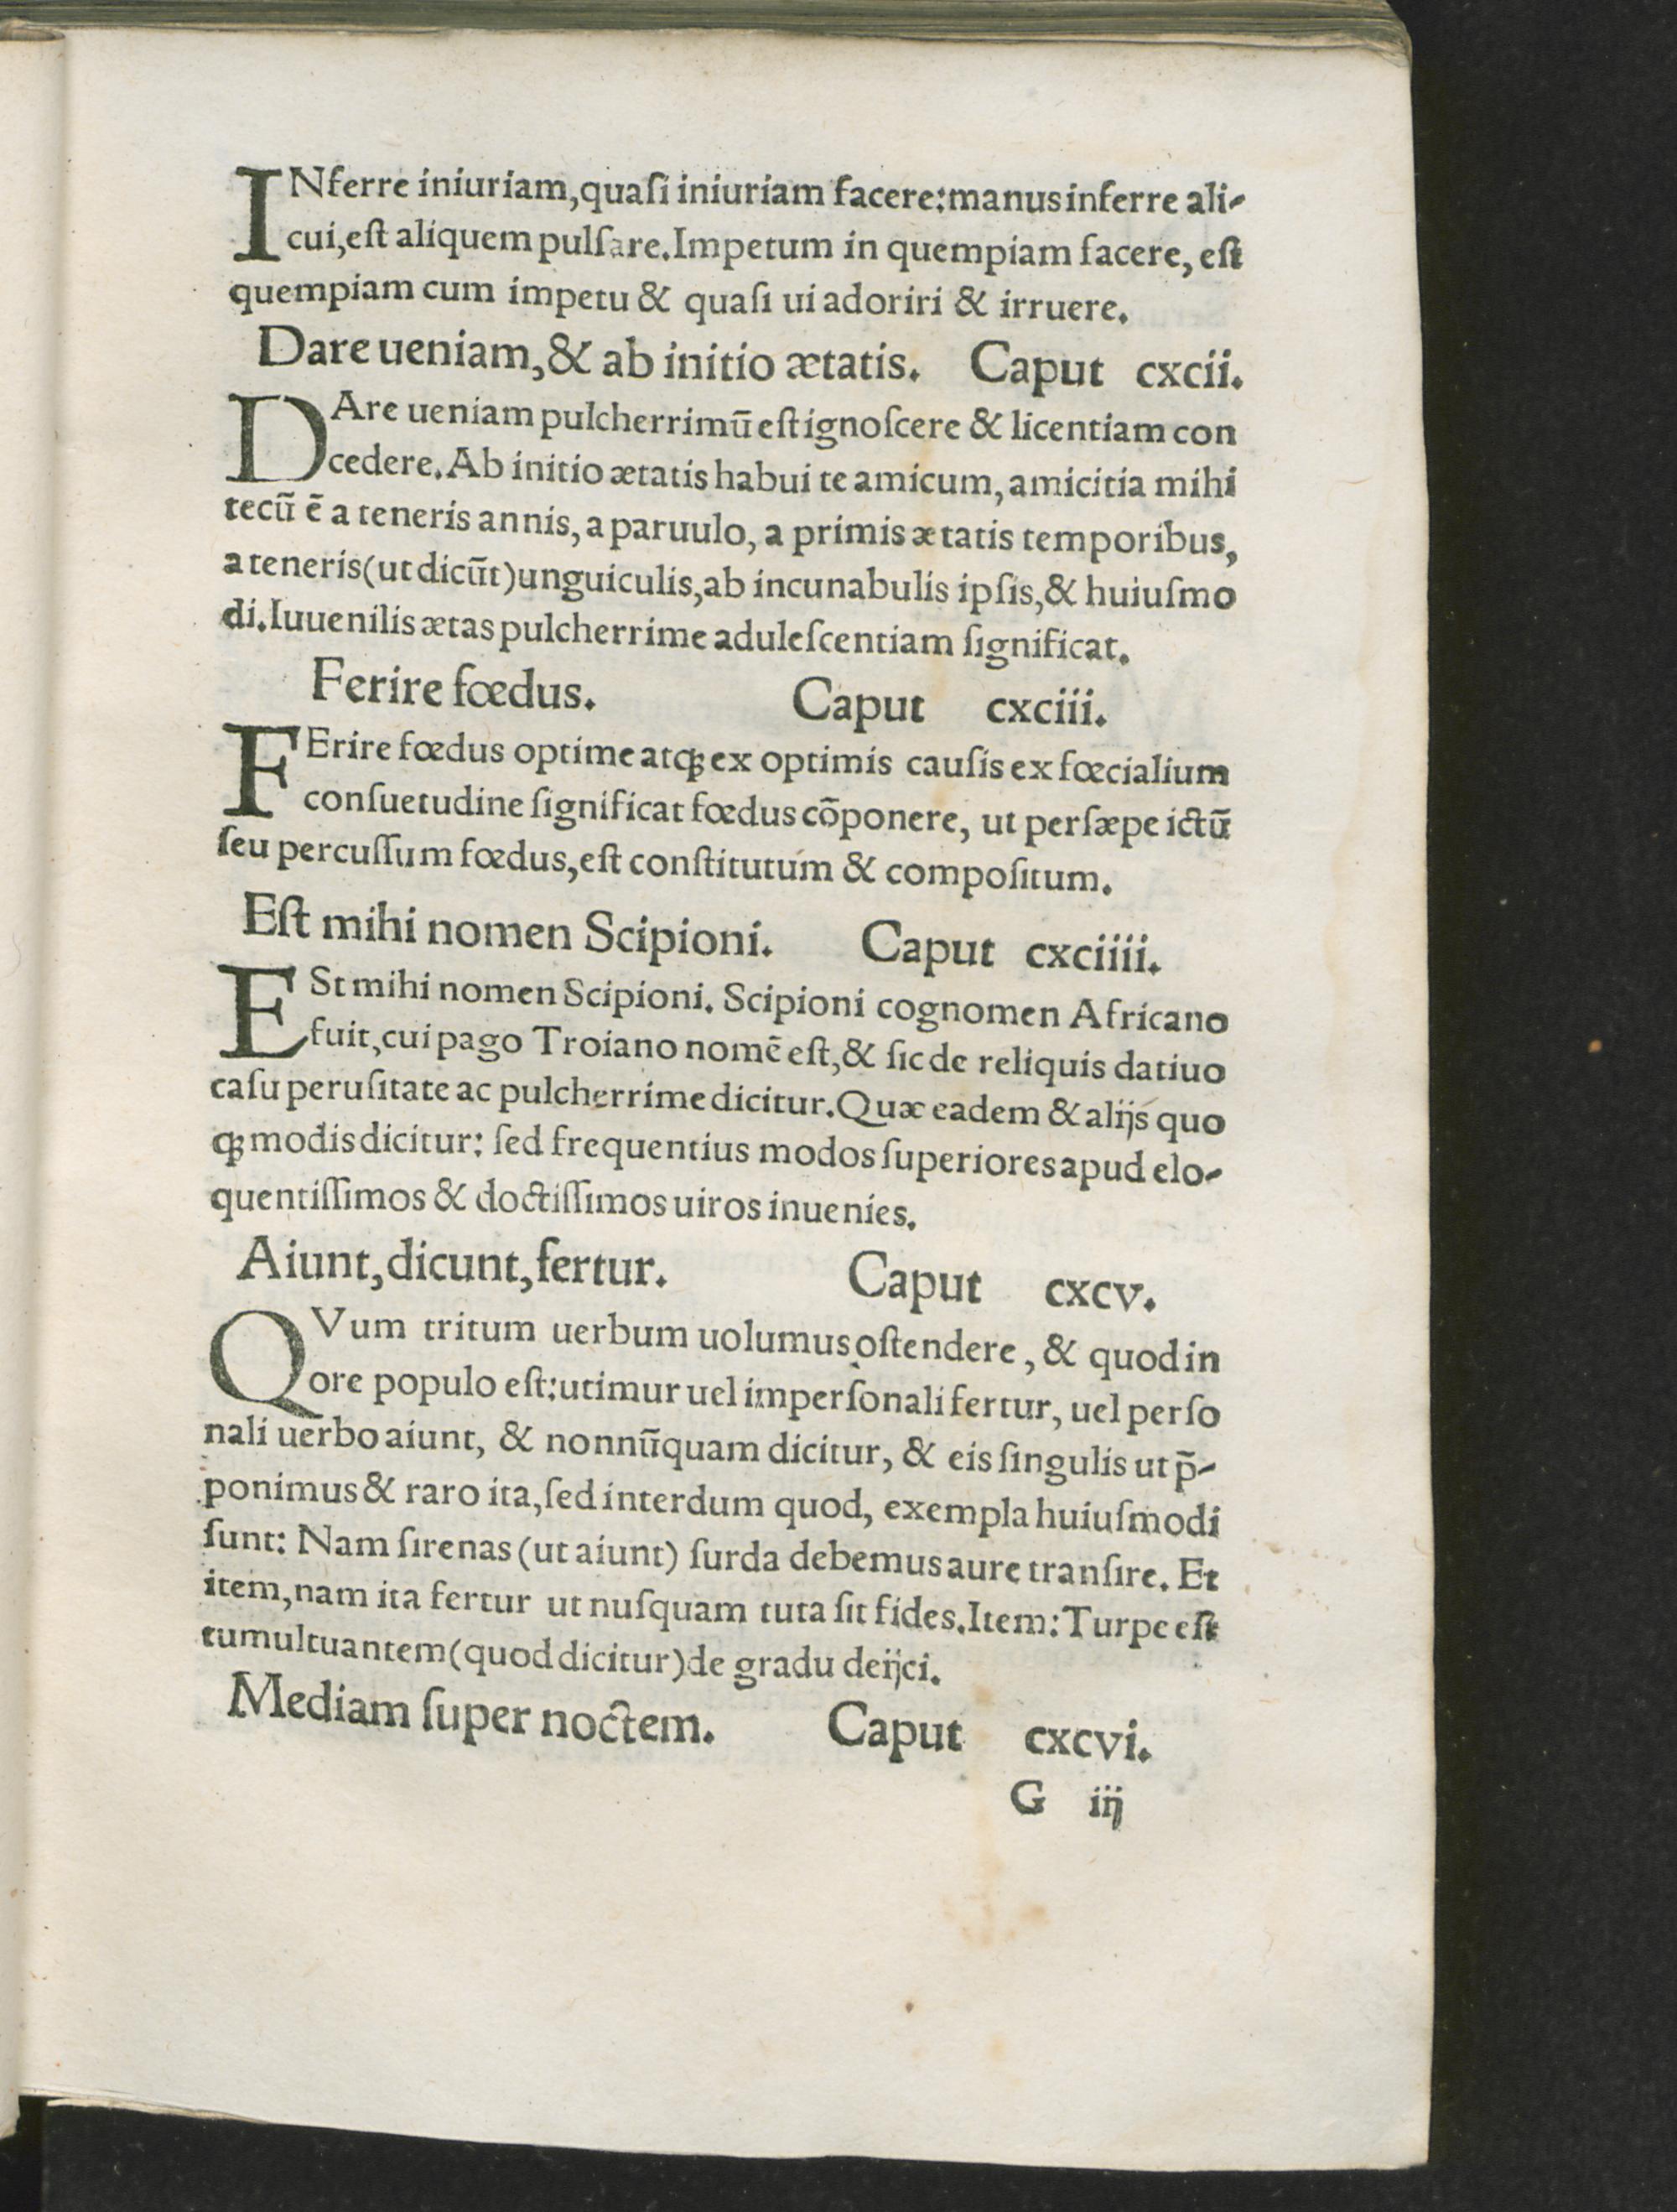 INferre iniuriam,quaſi iniuriam facere:manus inferre ali-
cui,eſt aliquem pulſare.Impetum in quempiam facere, eſt
quempiam cum impetu & quaſi ui adoriri & irruere.
Dare ueniam,& ab initio ætatis. Caput cxcii.
DAre ueniam pulcherrimū eſt ignoſcere & licentiam con
cedere.Ab initio ætatis habui te amicum, amicitia mihi
tecū ē a teneris annis, a paruulo, a primis ætatis temporibus,
a teneris(ut dicūt)unguiculis,ab incunabulis ipſis,& huiuſmo
di.Iuuenilis ætas pulcherrime aduleſcentiam ſignificat.
Ferire fœdus. Caput cxciii.
FErire fœdus optime atqꝫ ex optimis cauſis ex fœcialium
conſuetudine ſignificat fœdus cōponere, ut perſæpe ictū
ſeu percuſſum fœdus,eſt conſtitutum & compoſitum.
Eſt mihi nomen Scipioni. Caput cxciiii.
ESt mihi nomen Scipioni. Scipioni cognomen Africano
fuit,cui pago Troiano nomē eſt,& ſic de reliquis datiuo
caſu peruſitate ac pulcherrime dicitur.Quæ eadem & alijs quo
qꝫ modis dicitur: ſed frequentius modos ſuperiores apud elo-
quentiſſimos & doctiſſimos uiros inuenies.
Aiunt,dicunt,fertur. Caput cxcv.
QVum tritum uerbum uolumus oſtendere, & quod in
ore populo eſt:utimur uel imperſonali fertur, uel perſo
nali uerbo aiunt, & nonnūquam dicitur, & eis ſingulis ut p̄-
ponimus & raro ita,ſed interdum quod, exempla huiuſmodi
ſunt: Nam ſirenas (ut aiunt) ſurda debemus aure tranſire. Et
item,nam ita fertur ut nuſquam tuta ſit fides.Item:Turpe eſt
tumultuantem(quod dicitur)de gradu deijci.
Mediam ſuper noctem. Caput cxcvi.
G iij